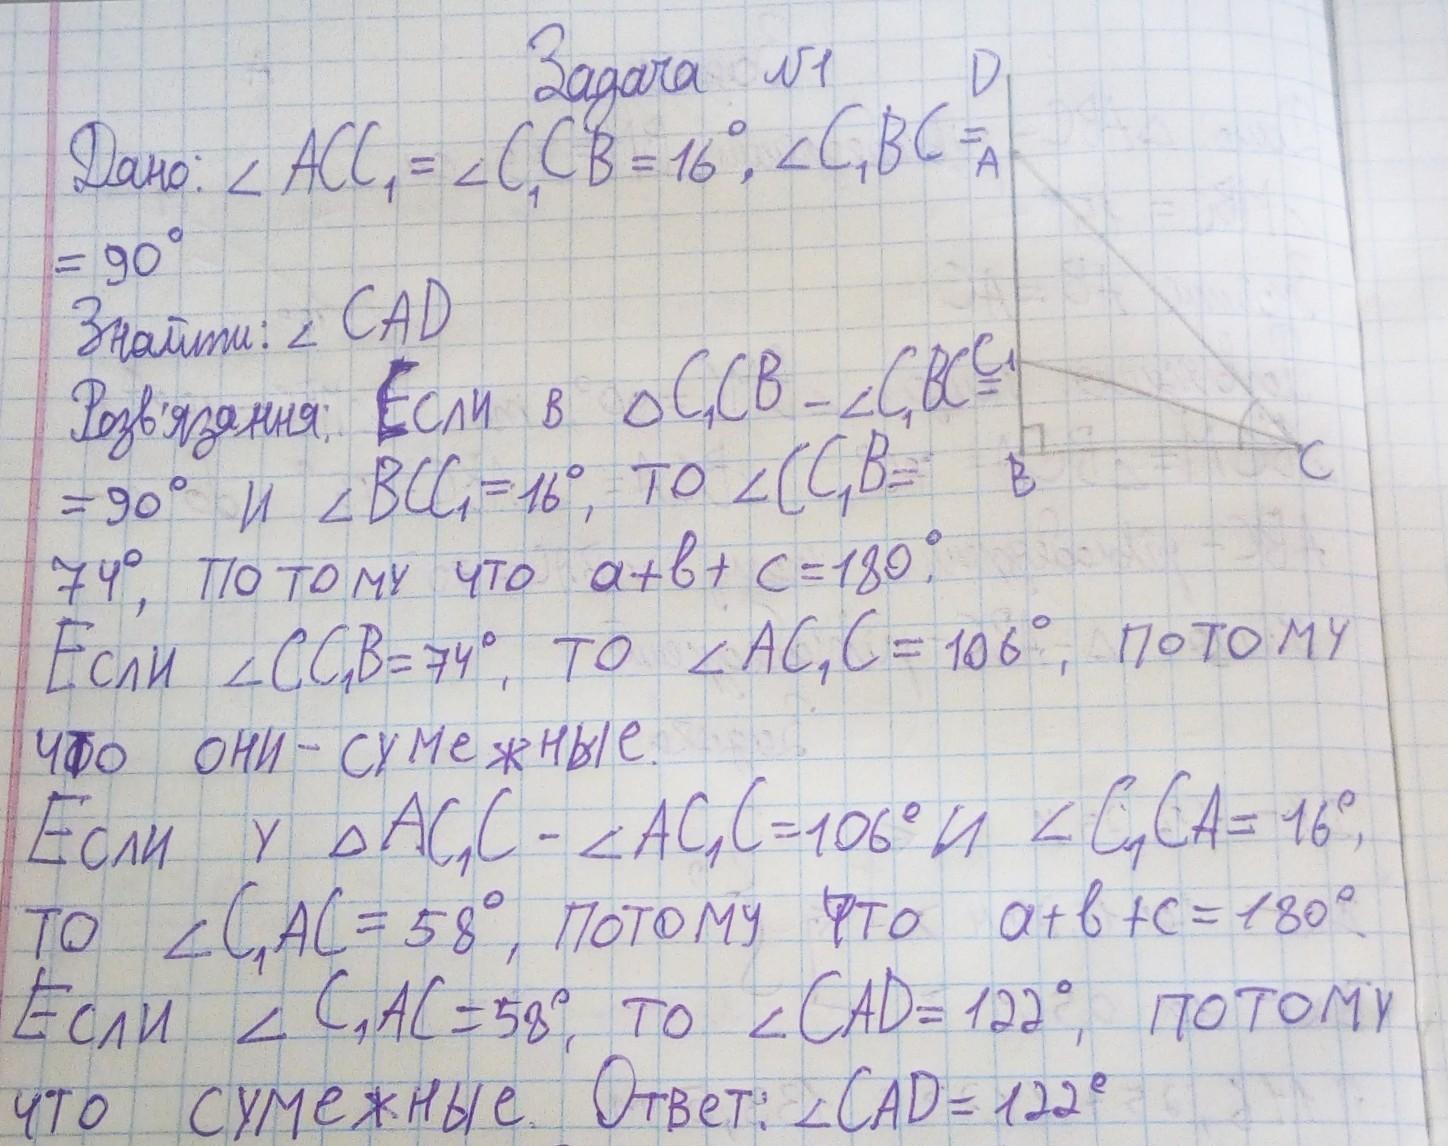 Задача №1
D
Дано: ∠ACC₁ = ∠C₁CB = 16°, ∠C₁BC =
A
= 90°
Знайти: ∠CAD
C₁
Розв'язання: Если в △C₁CB - ∠C₁BC =
B
C
= 90° и ∠BCC₁ = 16°, то ∠CC₁B =
74°, потому что a+b+c=180°.
Если ∠CC₁B=74°, то ∠AC₁C = 106°, потому
что они - сумежные.
Если у △AC₁C - ∠AC₁C=106° и ∠C₁CA= 16°,
то ∠C₁AC= 58°, потому что a+b+c=180°.
Если ∠C₁AC=58°, то ∠CAD= 122°, потому
что сумежные. Ответ: ∠CAD= 122°